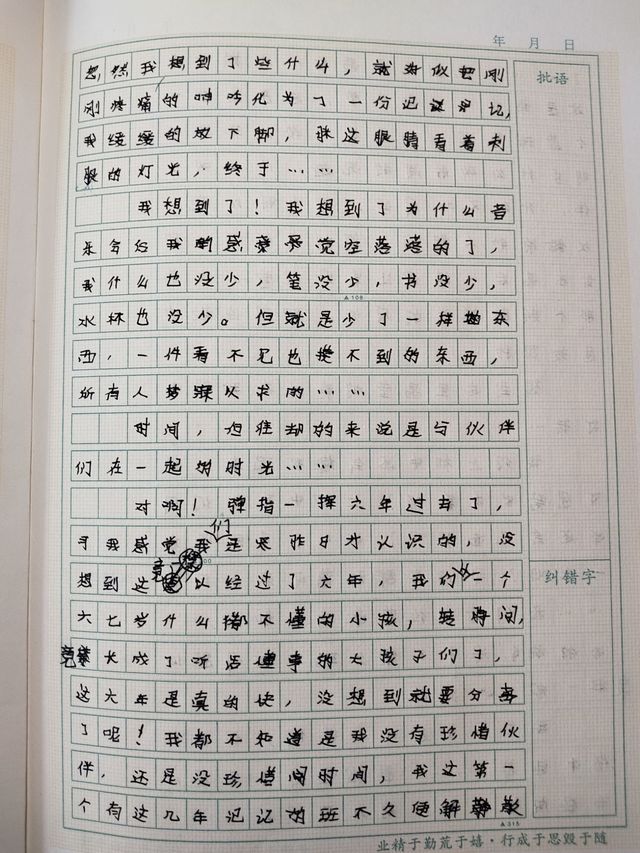 年 月 日
批语
忽然我想到了些什么，就好似把刚
刚疼痛的呻吟化为了一份记录记，
我缓缓的放下脚，眯这眼睛看着刺
眼的灯光，终于……
我想到了！我想到了为什么昔
来会给我的感觉空空落落的了，
我什么也没少，笔没少，书没少，
A 108
水杯也没少。但就是少了一样拗东
西，一件看不见也换不到的东西，
所有人梦寐以求的……
时间，但往却的来说是与伙伴
们在一起的时光……
对啊！弹指一挥六年过去了，
于我感觉我们还来昨日才认识的，没
想到这竟然以经过了六年，我们从一个
六七岁什么都不懂的小孩，转时间，
竟长成了听话懂事的大孩子们了，
这六年是真的快，没想到就要分离
了呢！我都不知道是我没有珍惜伙
伴，还是没珍惜间时间，我这第一
个有这几年记记的班不久便解散
A 315
纠错字
业精于勤荒于嬉·行成于思毁于随